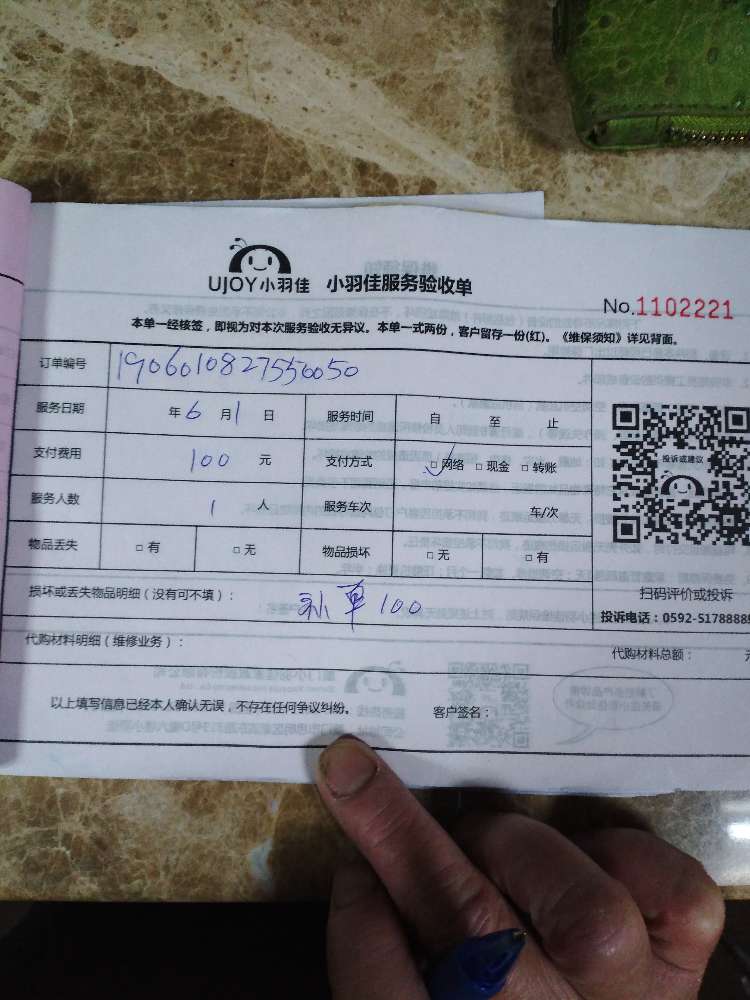 UJOY小羽佳 小羽佳服务验收单
No.1102221
本单一经核签,即视为对本次服务验收无异议。本单一式两份,客户留存一份(红)。《维保须知》详见背面。
订单编号 1906010827550050
服务日期 年6月1日 服务时间 自 至 止
支付费用 100元 支付方式 □网络 □现金 □转账
服务人数 1人 服务车次 车/次
物品丢失 □有 □无 物品损坏 □无 □有
投诉或建议
扫码评价或投诉
投诉电话:0592-5178888
损坏或丢失物品明细(没有可不填): 补单100
代购材料明细(维修业务): 代购材料总额:
以上填写信息已经本人确认无误,不存在任何争议纠纷。 客户签名: